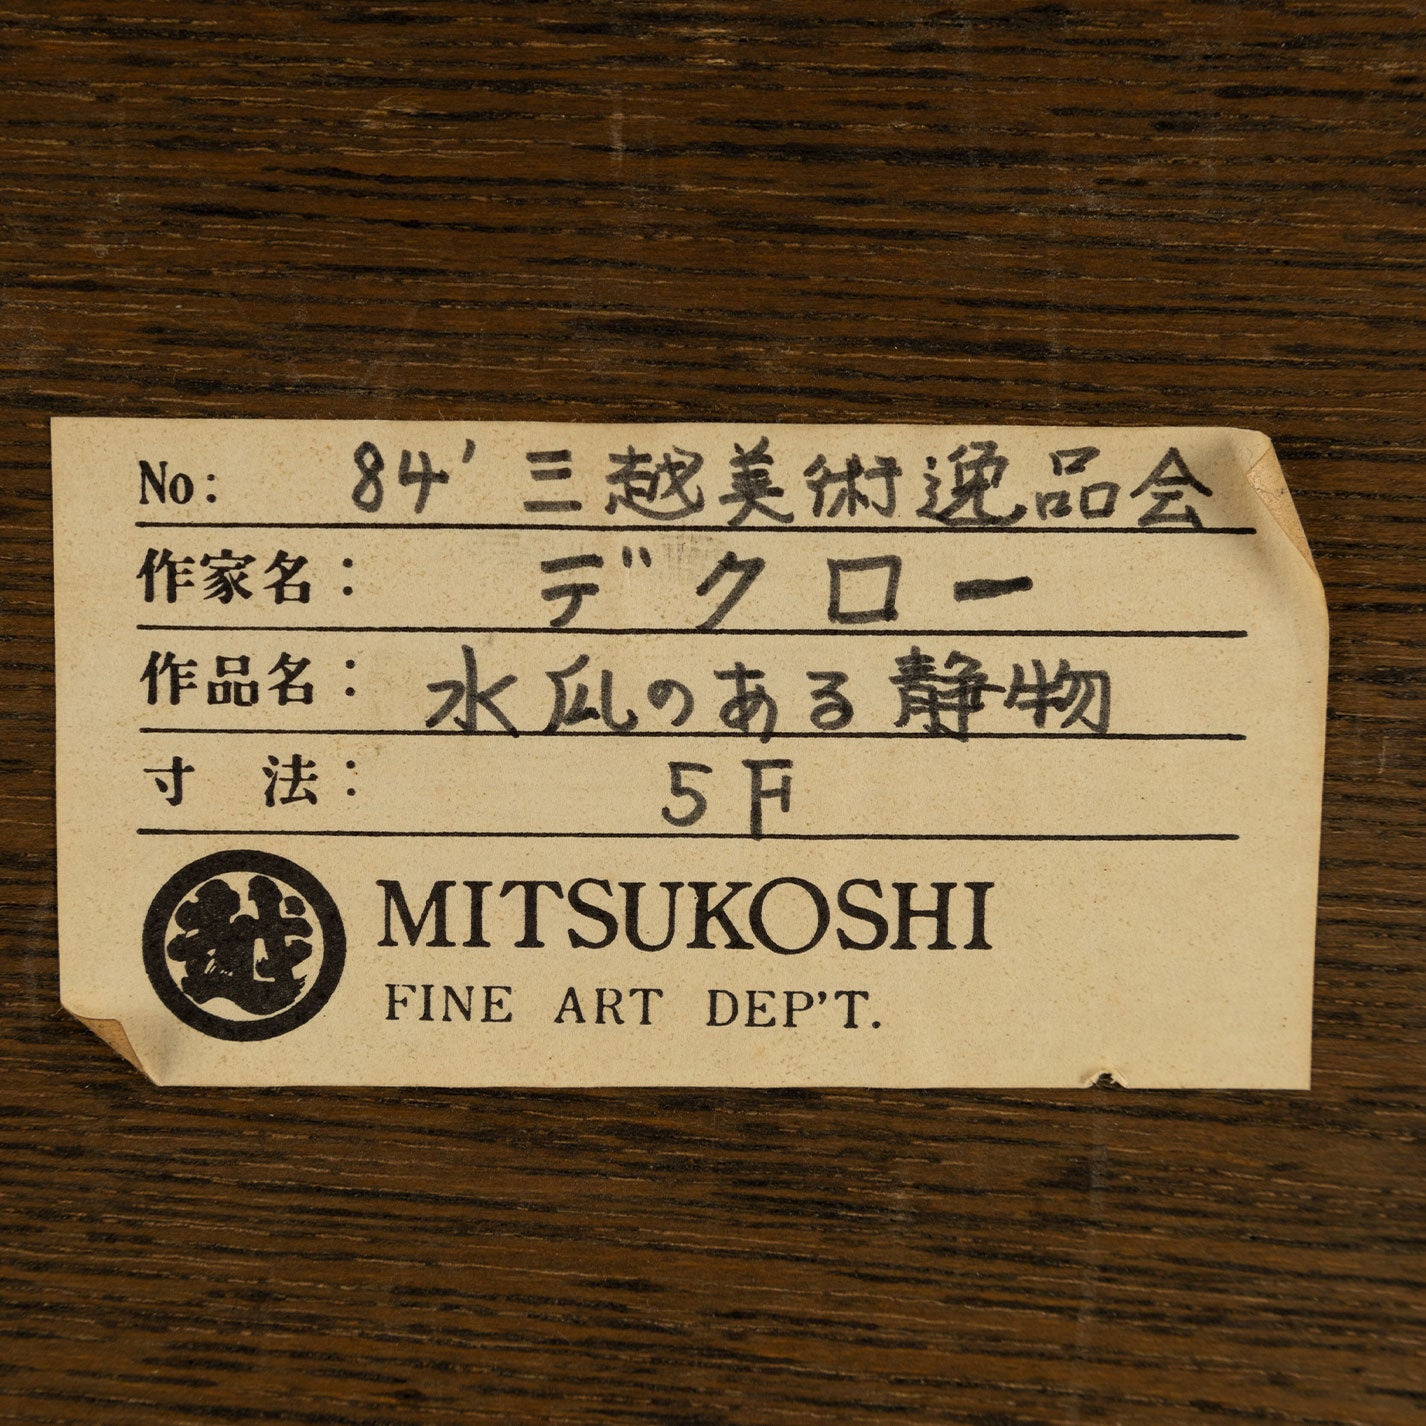 No: 84' 三越美術逸品会
作家名: デクロー
作品名: 水瓜のある静物
寸法: 5F
越 MITSUKOSHI
FINE ART DEP'T.